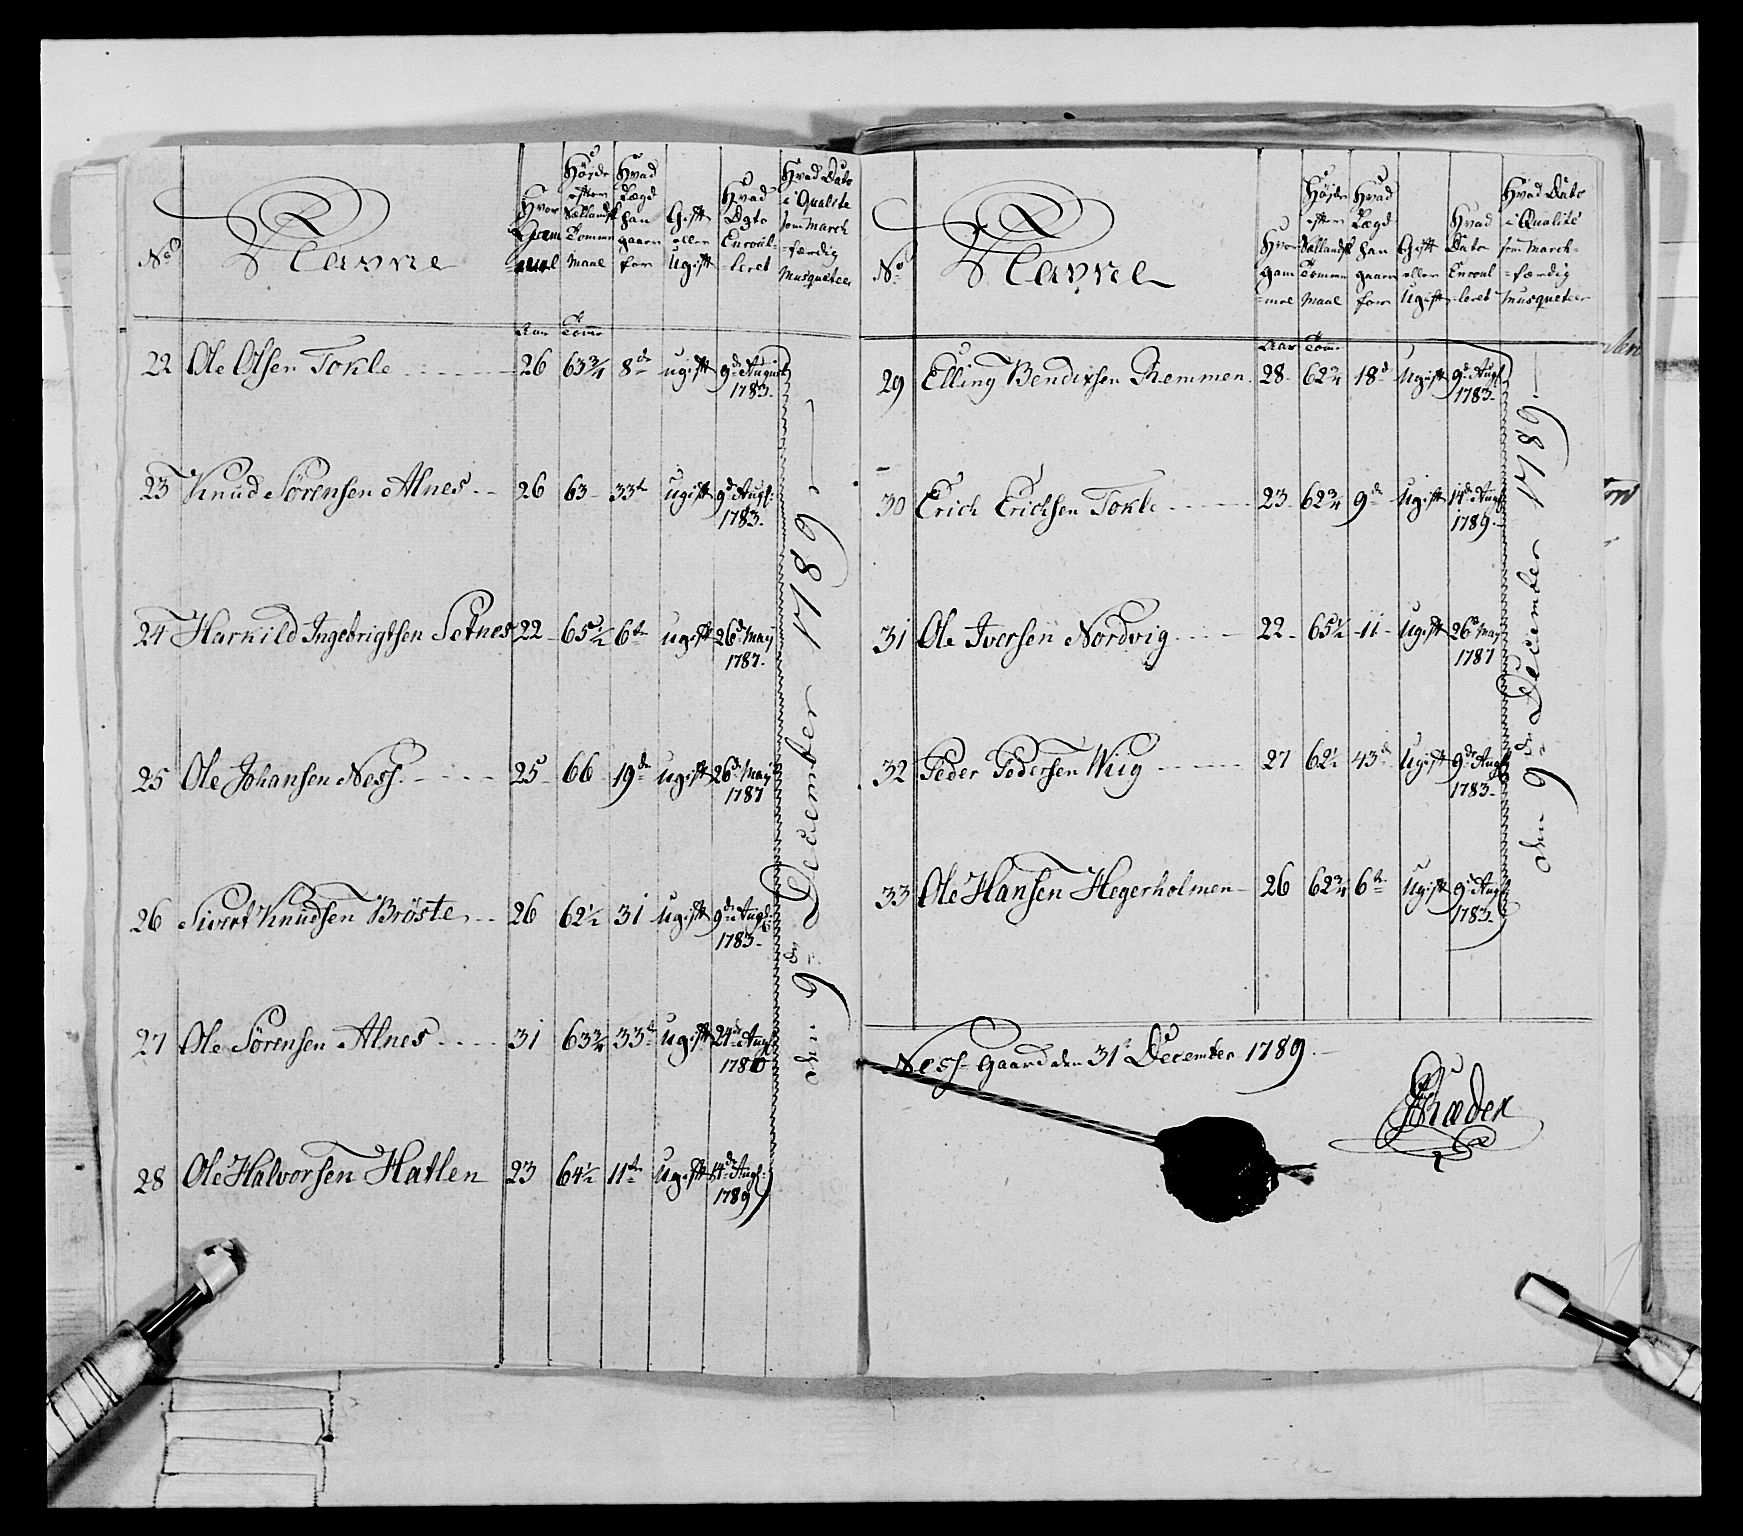 No Navne Hvor Gam mel Høyde efter Sællandsk Tomme Maal Hvad Lægd han gaaer for Gift eller Ugift Hvad Dato Enroul-leret Hvad Dato i Qualite som March-færdig Musqueteer
Aar Tomr
22 Ole Olsen Tokle 26 63¾ 8de ugift 9de August
1783.
23 Knud Sørensen Alnes 26 63 33te ugift 9de Augl:
1783.
24 Harkild Ingebrigtsen Setnes 22 65½ 6te ugift 26de May
1787.
25 Ole Johansen Ness. 25 66 19de ugift 26de May
1787
26 Sivert Knudsen Brøste 26 62½ 31 Ugift 9de Augl:
1783.
27 Ole Sørensen Alnes 31 63¾ 33te Ugift 24de Augl:
1786
28 Ole Halvorsen Hatlen 23 64½ 11te Ugift 14de Augl:
1789
den 9de December 1789
No Navne Hvor Gam-mel Høyde efter Sællandsk Tomme Maal Hvad Lægd han gaaer for Gift eller Ugift Hvad Dato Enroul-leret Hvad Dato i Qualité som March-færdig Musqueteer
Aar Tomr
29 Elling Bendixsen Remmen 28 62¾ 18de Ugift 9de Augl
1783.
30 Erich Erichsen Tokle 23 62¾ 9de Ugift 14de Augl
1789.
31 Ole Iversen Nordvig 22 65½ 11 Ugift 26de May
1787
32 Peder Pedersen Wiig 27 62½ 43de Ugift 9de Augl
1783.
33 Ole Hansen Hegerholmen 26 62¾ 6te Ugift 9de Augl
1783.
den 9de December 1789
Ness-Gaard den 31t December 1789.